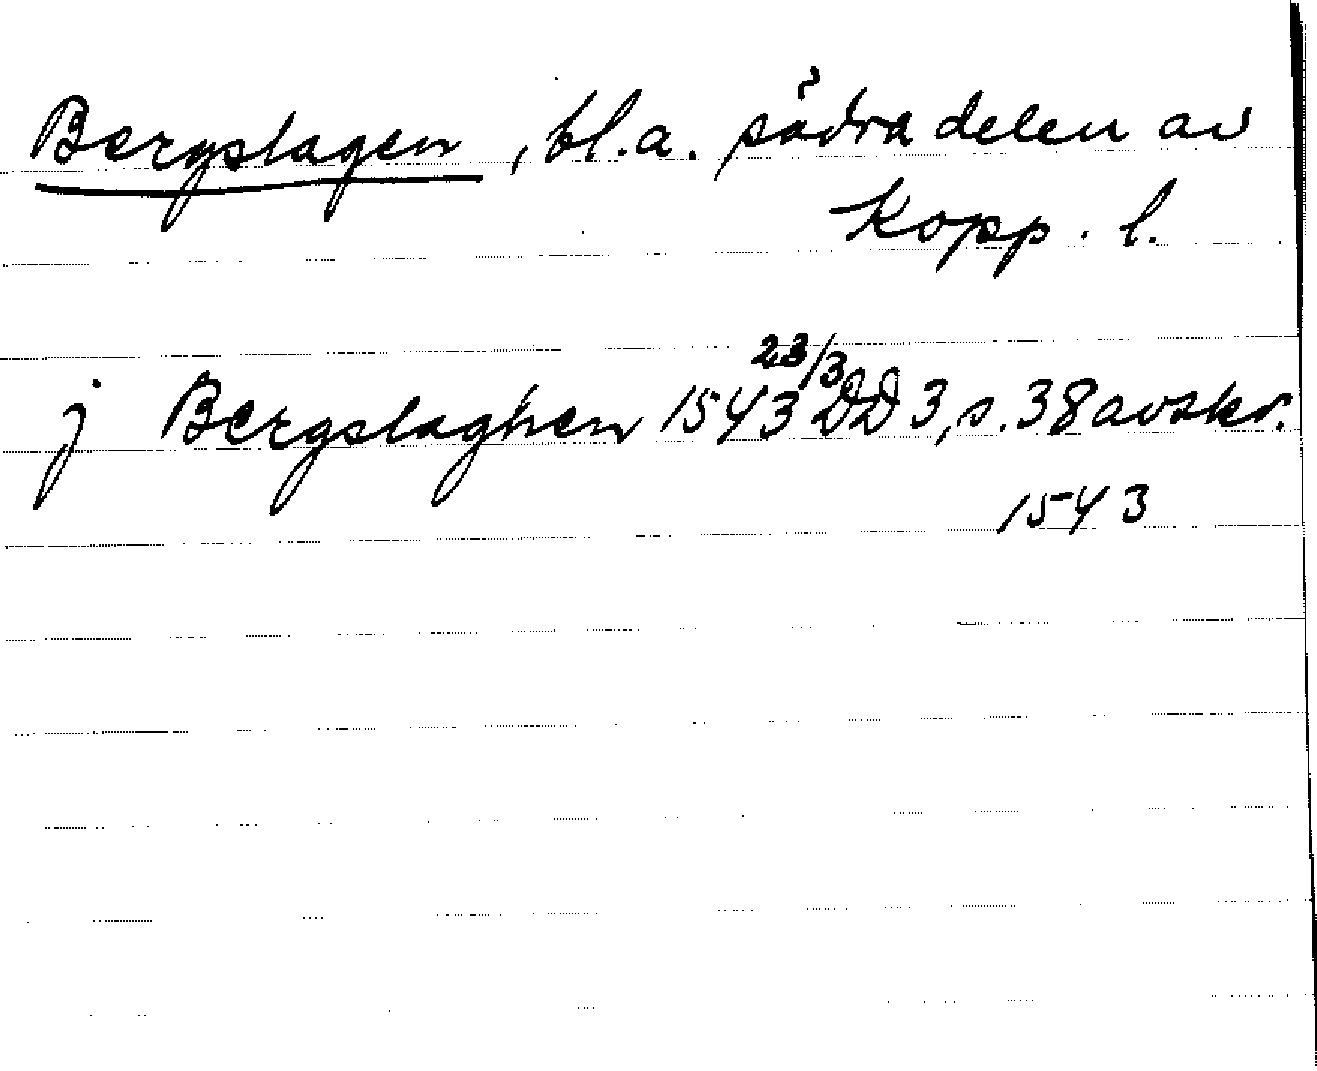 Bergslagen, bl.a. södra delen av
Kopp. l.
j Bergslaghen 1543 23/3 DD 3, s. 38 avskr.
1543